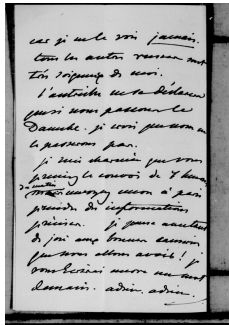 car je ne le vois jamais.
tous les autres russes sont
très soigneux de moi.
l'autriche ne se déclarera
que si nous passons le
Danube. je crois que nous ne
le passerons pas.
je suis charmée que vous
preniez le convoi de 7 heures
Du matin envoyez
prendre des informations
précises. je pense
de joie aux bonnes causeries
que nous allons avoir !
vous écrirai encore un mot
demain. adieu. adieu.